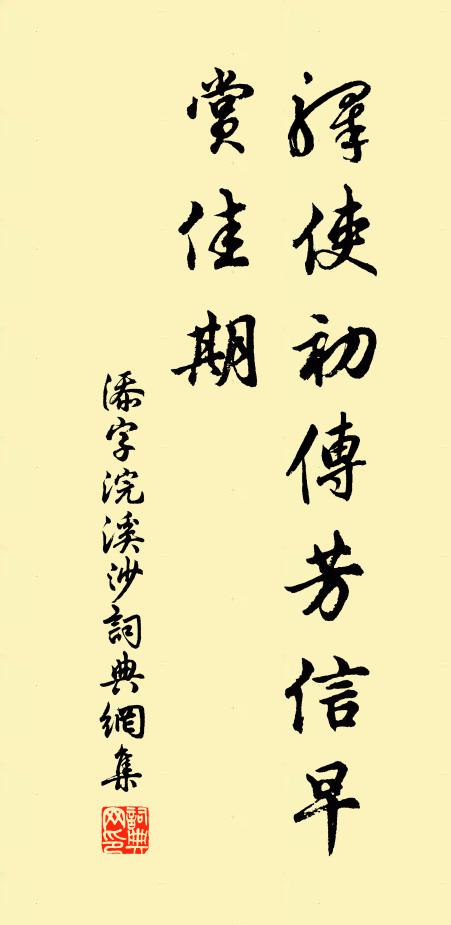 驛使初傳芳信早
賞佳期
添字浣溪沙詞典網集
詞典网印